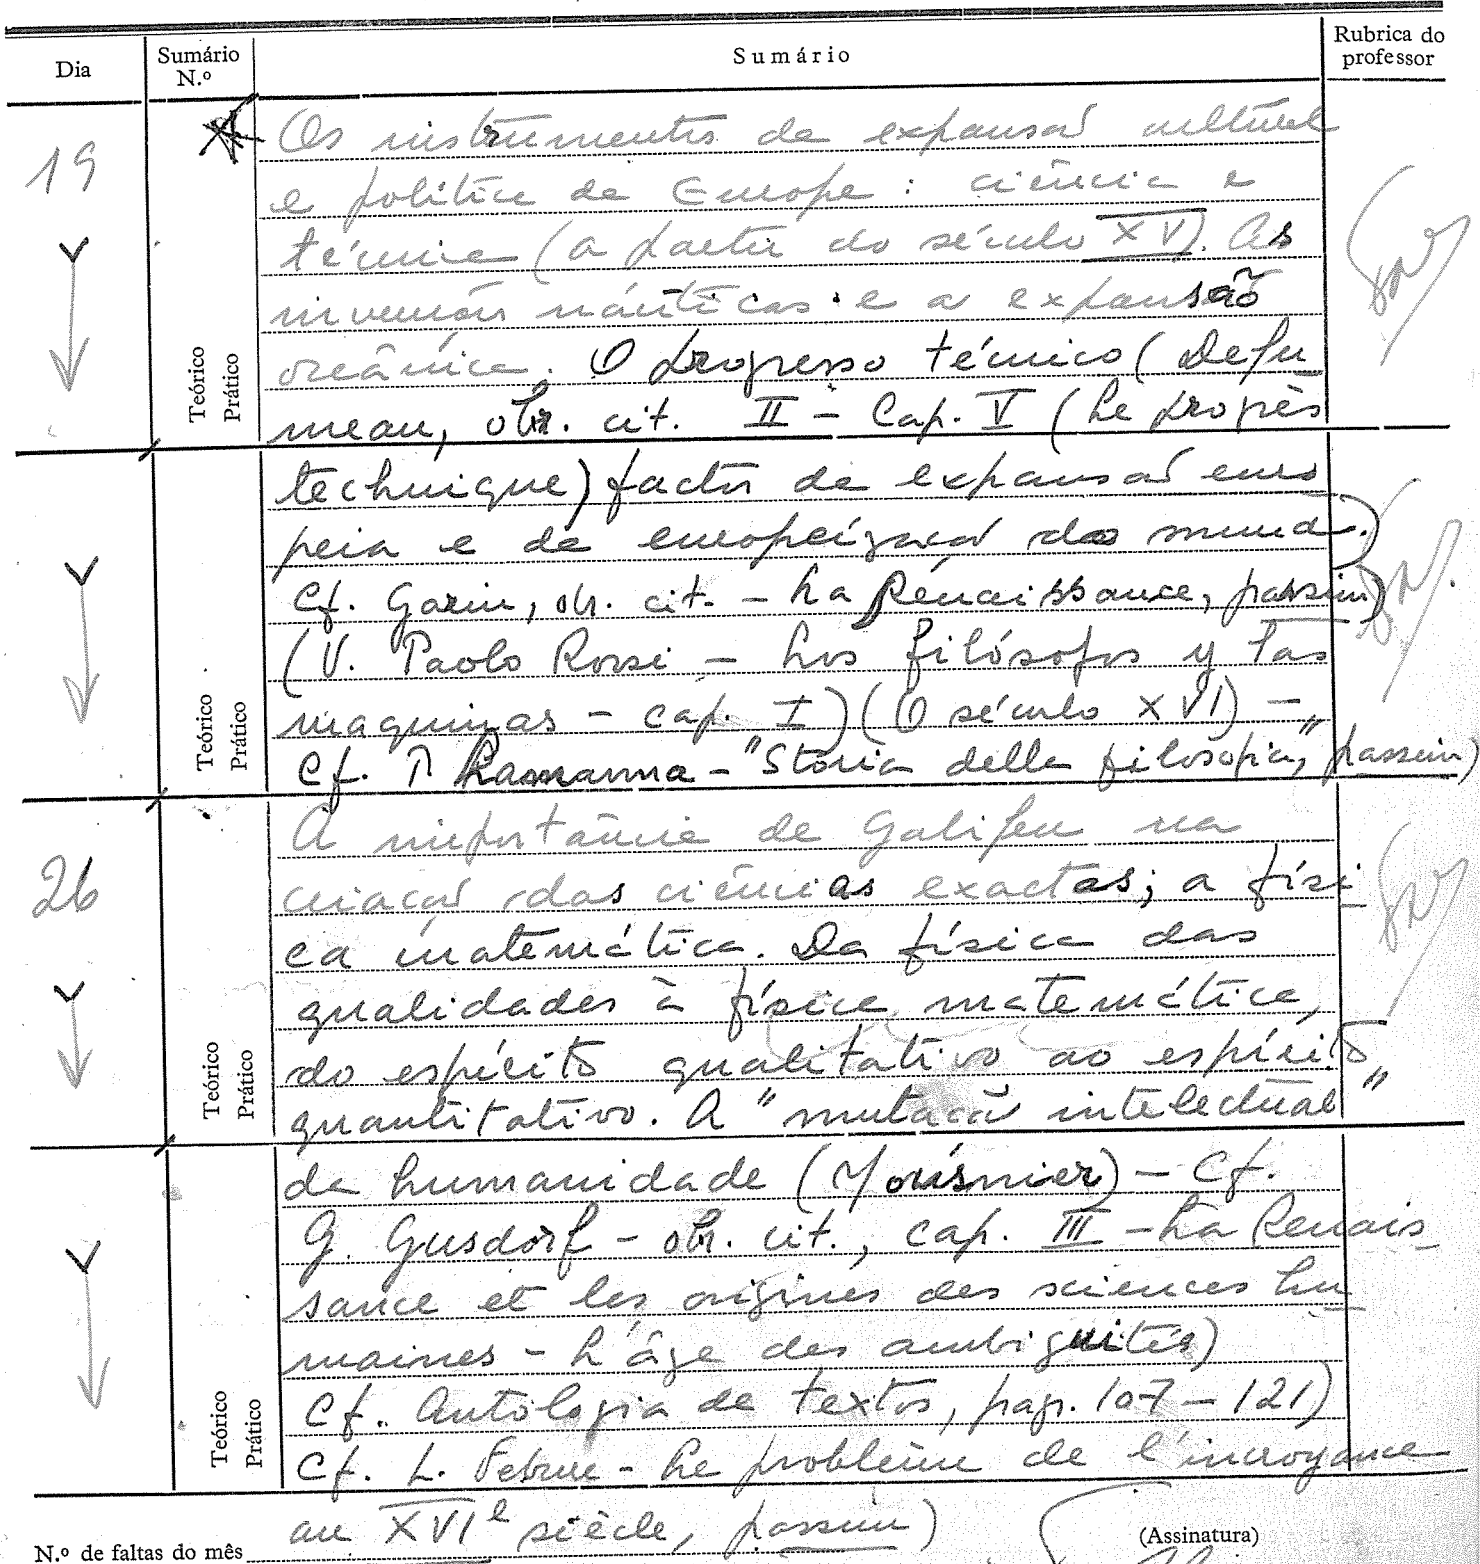 Dia Sumário N.º Sumário Rubrica do professor
19 Os instrumentos da expansão cultural
e política da Europa: ciência e
técnica (a partir do século XV). As
invenções náuticas e a expansão
oceânica. O progresso técnico (Defu
meau, obr. cit. II - Cap. V (Le progrès
Teórico Prático
technique) factor da expansão euro
peia e da europeização do mundo.)
Cf. Garin, ob. cit. - La Rénaissance, passim)
(V. Paolo Rossi - Los filósofos y las
maquinas - cap. I) (O século XVI) -
Cf. Lamanna - "Storia della filosofia", passim)
Teórico Prático
26 A importância de Galileu na
criação das ciências exactas; a físi
ca matemática. Da física das
qualidades à física matemática,
do espírito qualitativo ao espírito
quantitativo. A "mutação intelectual"
Teórico Prático
da humanidade (Mousnier) - Cf.
G. Gusdorf - obr. cit., cap. III - La Renais
sance et les origines des sciences hu
maines - L'âge des ambiguités)
Cf. Antologia de textos, pag. 107 - 121)
Cf. L. Febvre - Le problème de l'incroyance
Teórico Prático
au XVIe siècle, passim)
N.º de faltas do mês (Assinatura)